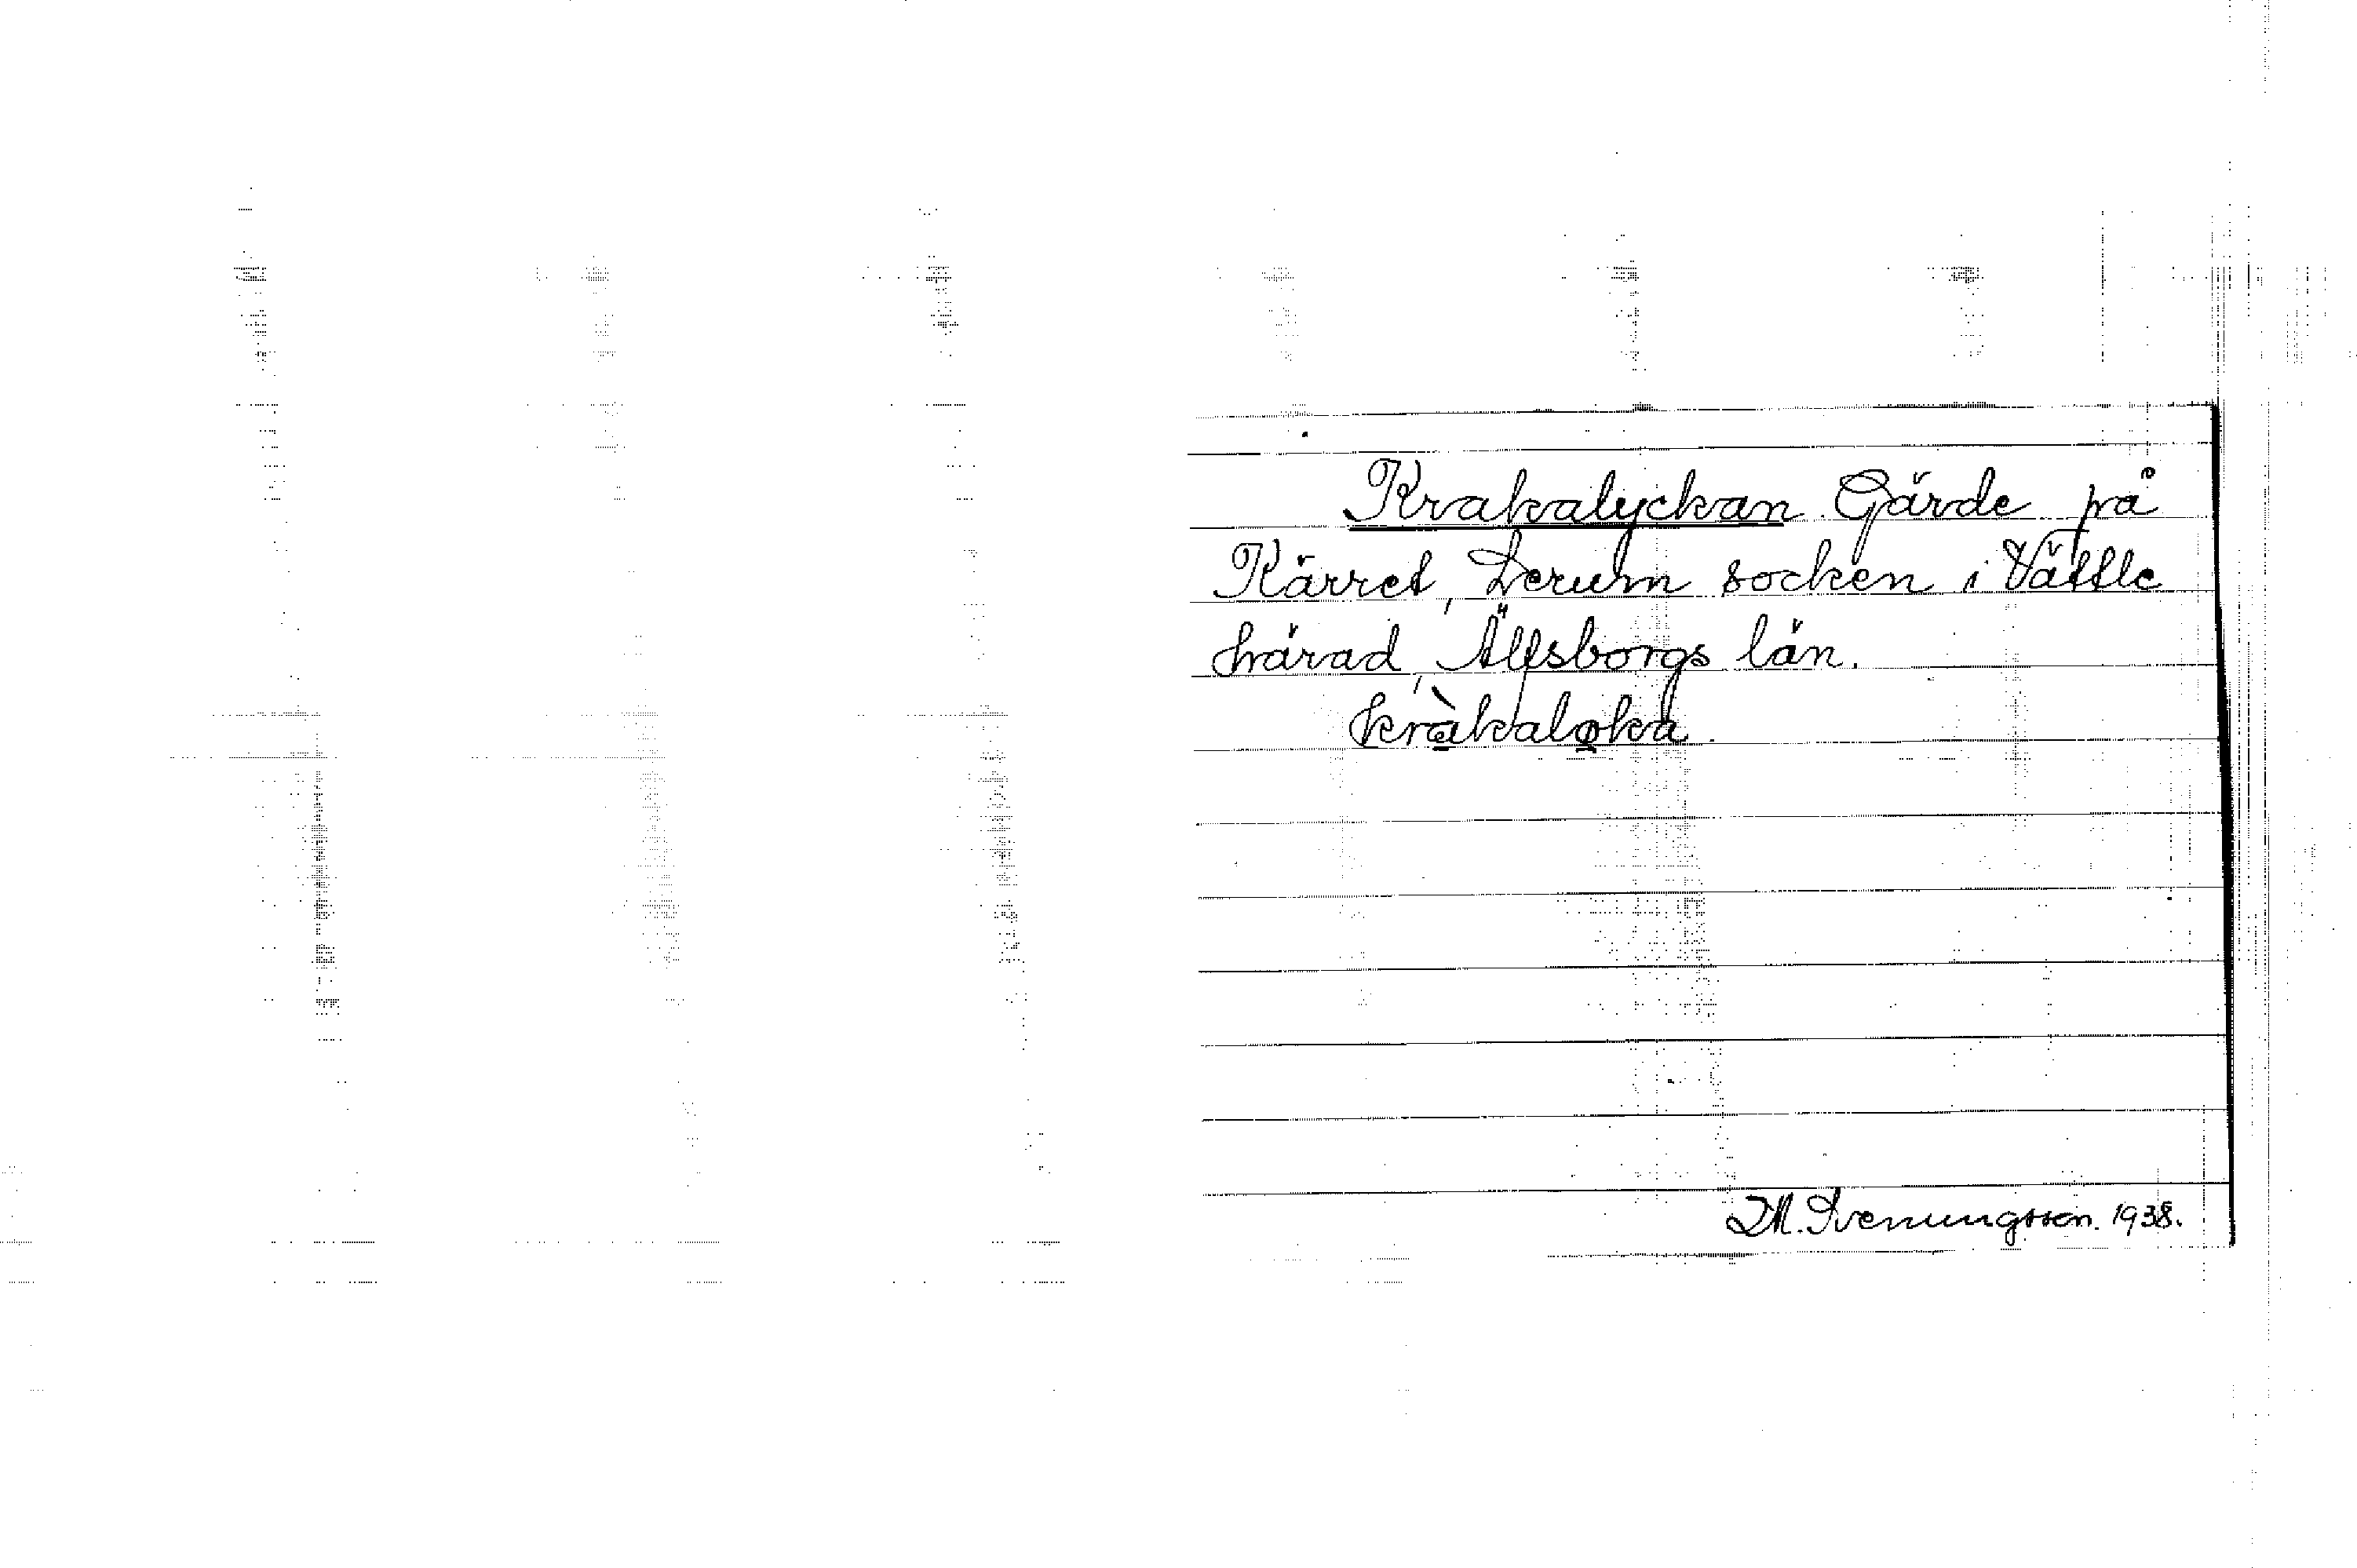 Krakalyckan Gärde på
Kärret, Lerum socken i Vättle
härad, Älfsborgs län.
kràkaløka.
M. Svenungsson. 1938.